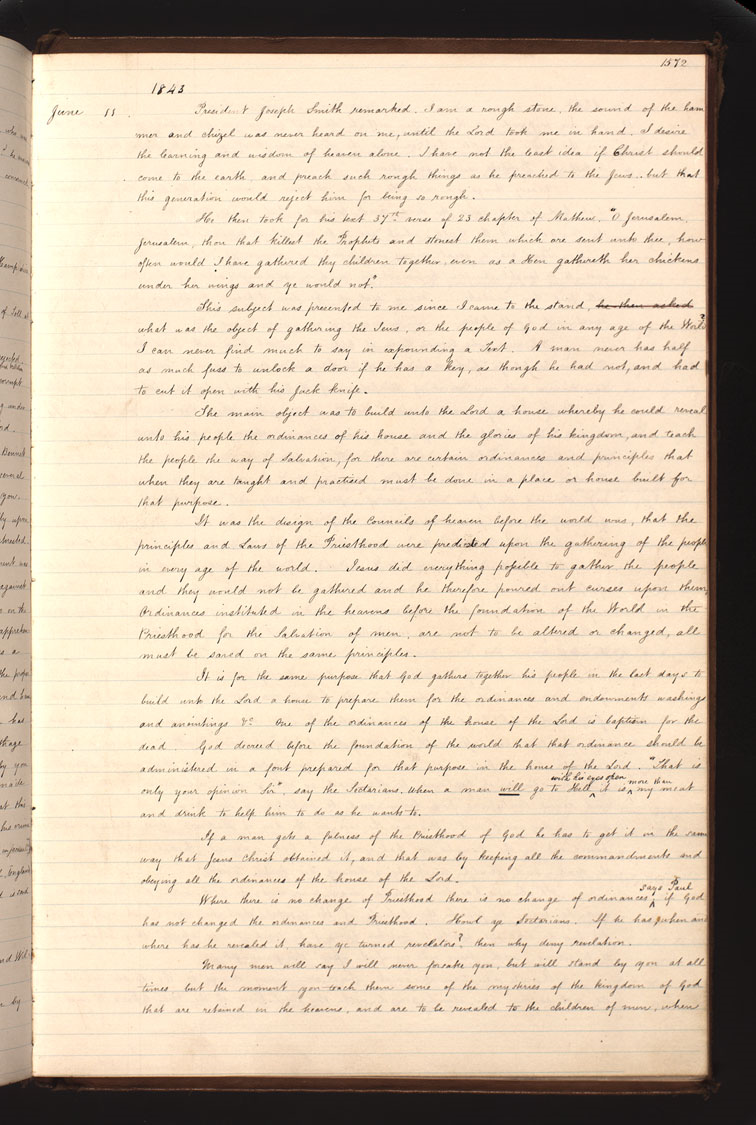 1572
1843
June 11. President Joseph Smith remarked. I am a rough stone, the sound of the ham
mer and chizel was never heard on me, until the Lord took me in hand. I desire
the learning and wisdom of heaven alone. I have not the least idea if Christ should
come to the earth and preach such rough things as he preached to the Jews.. but that
this generation would reject him for being so rough.
He then took for his text 37th verse of 23 chapter of Mathew. "O Jerusalem,
Jerusalem, thou that killest the Prophets and stonest them which are sent unto thee, how
often would I have gathered thy children together, even as a Hen gathereth her chickens
under her wings and ye would not."
This subject was presented to me since I came to the stand, he then asked
what was the object of gathering the Jews, or the people of God in any age of the World?
I can never find much to say in expounding a Text. A man never has half
as much fuss to unlock a door if he has a Key, as though he had not, and had
to cut it open with his Jack knife.
The main object was to build unto the Lord a house whereby he could reveal
unto his people the ordinances of his house and the glories of his kingdom, and teach
the people the way of Salvation, for there are certain ordinances and principles that
when they are taught and practised must be done in a place or house built for
that purpose.
It was the design of the Councils of heaven before the world was, that the
principles and Laws of the Priesthood were predicted upon the gathering of the people
in every age of the world. Jesus did everything possible to gather the people
and they would not be gathered and he therefore poured out curses upon them
Ordinances instituted in the heavens before the foundation of the World in the
Priesthood for the Salvation of men, are not to be altered or changed, all
must be saved on the same principles.
It is for the same purpose that God gathers together his people in the last days to
build unto the Lord a house to prepare them for the ordinances and endowments washings
and anointings &c One of the ordinances of the house of the Lord is baptism for the
dead. God decreed before the foundation of the world that that ordinance should be
administered in a font prepared for that purpose in the house of the Lord. "That is
with his eyes open more than
only your opinion Sir", say the Sectarians. When a man will go to Hell ^ it is ^ my meat
and drink to help him to do as he wants to.
If a man gets a fulness of the Priesthood of God he has to get it in the same
way that Jesus Christ obtained it, and that was by keeping all the commandments and
obeying all the ordinances of the house of the Lord.
says Paul
Where there is no change of Priesthood there is no change of ordinances ^ if God
has not changed the ordinances and Priesthood. Howl ye Sectarians. If he has, when and
where has he revealed it, have ye turned revelators? then why deny revelation.
Many men will say I will never forsake you, but will stand by you at all
times but the moment you teach them some of the mysteries of the kingdom of God
that are retained in the heavens, and are to be revealed to the children of men, when